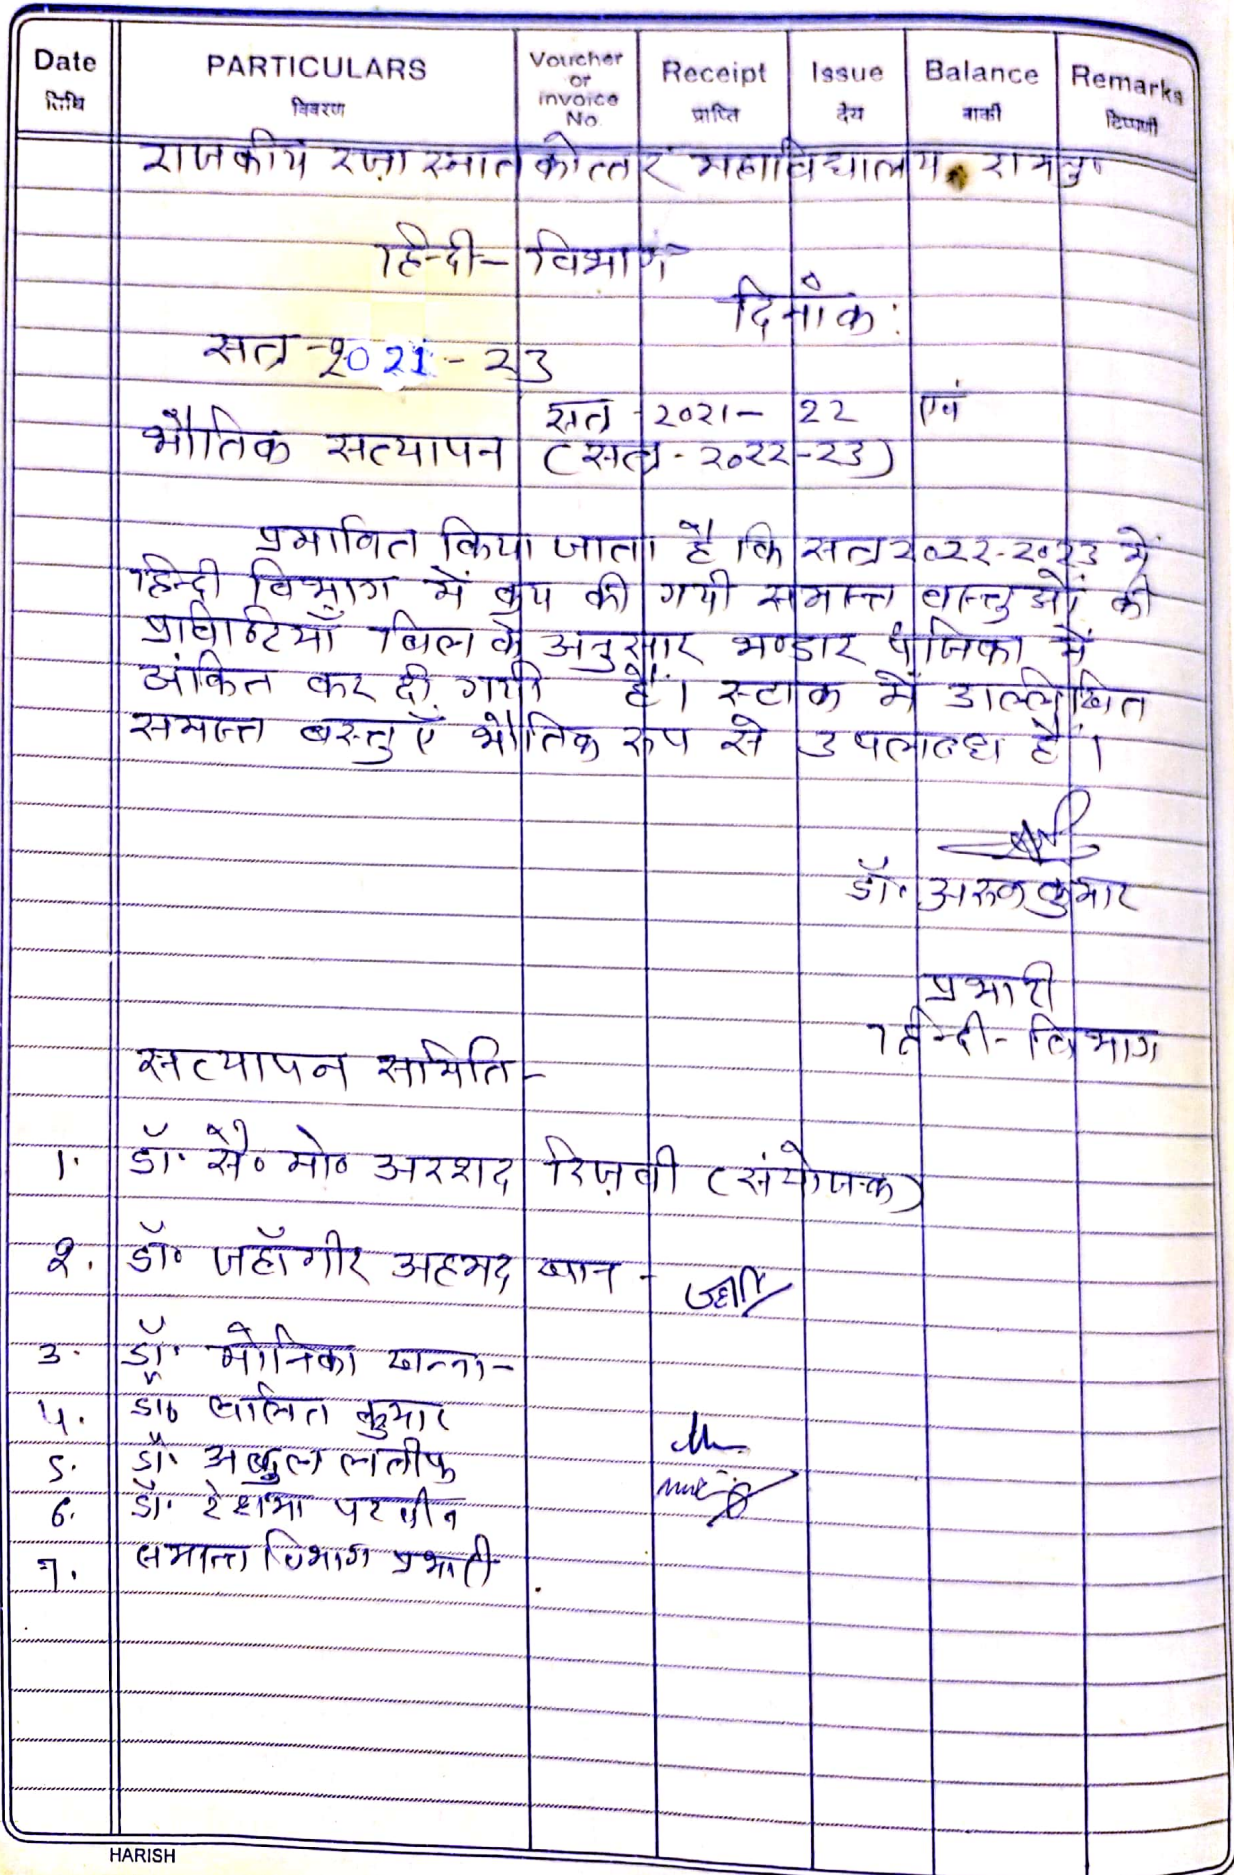 Date PARTICULARS Voucher or invoice No. Receipt Issue Balance Remarks
तिथि विवरण प्राप्ति देय बाकी टिप्पणी
राजकीय रज़ा स्नातकोत्तर महाविद्यालय, रामपुर
हिन्दी-विभाग
दिनांक:
सत्र-2021-23
सत्र-2021-22 एवं
भौतिक सत्यापन (सत्र-2022-23)
प्रमाणित किया जाता है कि सत्र 2022-2023 में
हिन्दी विभाग में क्रय की गयी समस्त वस्तुओं की
प्रविष्टियाँ बिल के अनुसार भण्डार पंजिका में
अंकित कर दी गयी हैं। स्टाक में उल्लिखित
समस्त वस्तुएँ भौतिक रूप से उपलब्ध हैं।
डॉ. अरुण कुमार
प्रभारी
हिन्दी-विभाग
सत्यापन समिति-
1. डॉ. सै० मो० अरशद रिज़वी (संयोजक)
2. डॉ० जहाँगीर अहमद खान -
3. डॉ. मोनिका खन्ना-
4. डॉ० ललित कुमार
5. डॉ. अब्दुल लतीफ
6. डॉ. रेशमा परवीन
7. समस्त विभाग प्रभारी
HARISH